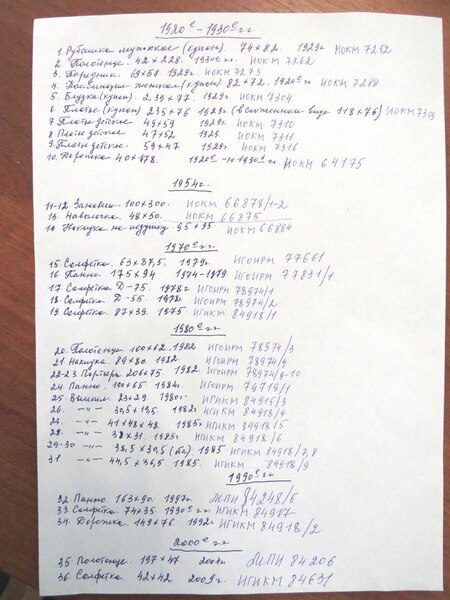 1920е-1930е гг
1. Рубашка мужская (купон). 74х82. 1929г ИОКМ 7252
2. Полотенце. 42х228. 1930е гг. ИОКМ 7262
3. Передник. 69х58. 1929г. ИОКМ 7273
4. женская (купон) 82х72. 1920е гг ИОКМ 7288
5. Блузка (купон). 2,39х77. 1929г. ИОКМ 7304
6. Платье (купон) 235х76 1929г (в сложенном виде 118х76) ИОКМ 7309
7 Платье детское 49х59 1929г. ИОКМ 7310
8 Платье детское 47х52 1929. ИОКМ 7311
9. Платье детское. 59х47 1929г. ИОКМ 7316
10. Дорожка 40х178. 1920е-н.1930е гг ИОКМ 64175
1954г.
11-12. Занавеси. 100х300. ИОКМ 66878/1-2
13. Наволочка. 48х50. ИОКМ 66875
14 Накидка на подушку. 95х95 ИОКМ 66884
1970е гг
15. Салфетка. 63х37,5. 1979г. ИГОИРМ 77661
16. Панно. 175х94 1974-1979. ИГОИРМ 77831/1
17. Салфетка D-75. 1978г ИГОИРМ 78974/1
18. Салфетка D-55. 1978г. ИГОИРМ 78974/2
19. Салфетка. 87х39. 1975 ИГИКМ 84918/1
1980е гг
20. Полотенце. 100х62. 1982 ИГОИРМ 78974/3
21. Накидка. 89х80. 1982 ИГОИРМ 78974/4
22-23. Портьера 206х75. 1982. ИГОИРМ 78974/9-10
24. Панно. 100х65. 1984г. ИГОИРМ 79719/1
25. Вышивк. 23х29. 1980г. ИГИКМ 84915/3
26. -"- 39,5х19,5. 1982г ИГИКМ 84918/4
27. -"- 41х48х48. 1985г ИГИКМ 84918/5
28. -"- 38х31. 1985г. ИГИКМ 84918/6
29-30 -"- 38,5х39,5 (ба). 1985 ИГИКМ 84918/7,8
31. -"- 44,5х36,5. 1985. ИГИКМ 84918/9
1990е гг
32. Панно. 163х90. 1997г. МПИ 84248/6
33. Салфетка. 74х35. 1990е гг. ИГИКМ 84917
34. Дорожка. 149х76 1992г ИГИКМ 84918/2
2000е гг
35. Полотенце. 197х47. 2001г МПИ 84206
36. Салфетка. 42х42 2009г ИГИКМ 84631